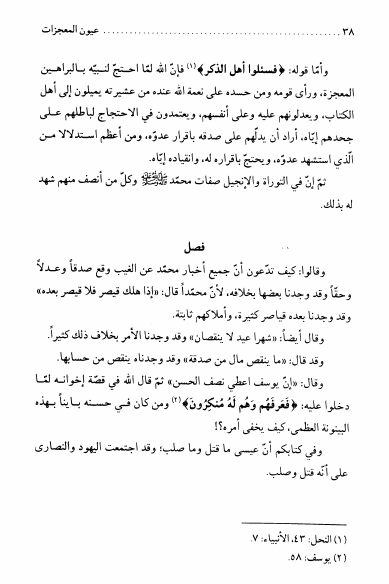 ٣٨ ........................................ عيون المعجزات
وأمّا قوله: ﴿فسئلوا أهل الذكر﴾(١) فإنّ الله لمّا احتجّ لنبيّه بالبراهين
المعجزة، ورأى قومه ومن حسده على نعمة الله عنده من عشيرته يميلون إلى أهل
الكتاب، ويعدلونهم عليه وعلى أنفسهم، ويعتمدون في الاحتجاج لباطلهم على
جحدهم إيّاه، أراد أن يدلّهم على صدقه باقرار عدوّه، ومن أعظم استدلالا من
الّذي استشهد عدوّه، ويحتجّ باقراره له، وانقياده إيّاه.
ثمّ إنّ في التوراة والإنجيل صفات محمّد ﷺ وكلّ من أنصف منهم شهد
له بذلك.
فصل
وقالوا: كيف تدّعون أنّ جميع أخبار محمّد عن الغيب وقع صدقاً وعدلاً
وحقّاً وقد وجدنا بعضها بخلافه، لأنّ محمّداً قال: «إذا هلك قيصر فلا قيصر بعده»
وقد وجدنا بعده قياصر كثيرة، وأملاكهم ثابتة.
وقال أيضاً: «شهرا عيد لا ينقصان» وقد وجدنا الأمر بخلاف ذلك كثيراً.
وقد قال: «ما ينقص مال من صدقة» وقد وجدناه ينقص من حسابها.
وقال: «إنّ يوسف اعطي نصف الحسن» ثمّ قال الله في قصّة إخوانه لمّا
دخلوا عليه: ﴿فَعَرَفَهُم وَهُم لَهُ مُنكِرُونَ﴾(٢) ومن كان في حسنه بايناً بهذه
البينونة العظمى، كيف يخفى أمره؟!
وفي كتابكم أنّ عيسى ما قتل وما صلب؛ وقد اجتمعت اليهود والنصارى
على أنّه قتل وصلب.
(١) النحل: ٤٣، الأنبياء: ٧.
(٢) يوسف: ٥٨.